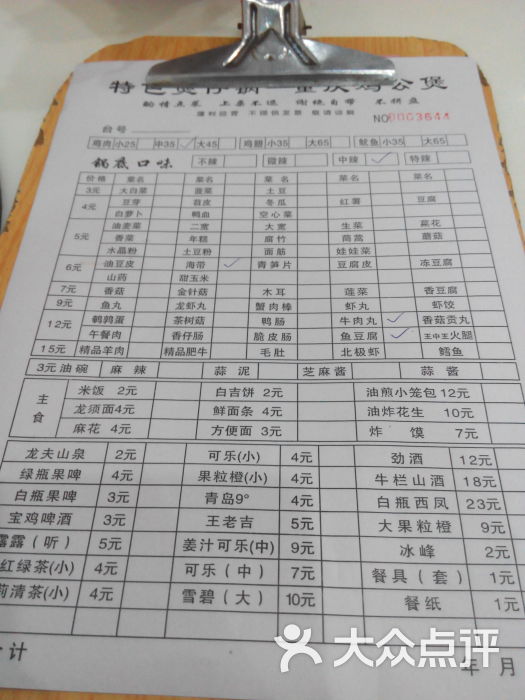 特色煲仔锅 重庆鸡公煲
酌情点菜 上桌不退 谢绝自带 不拼盘
薄利经营 不提供发票 敬请谅解
台号 NO 0003644
鸡肉 小25 中35 ✓ 大45 鸡翅 小35 大65 鱿鱼 小35 大65
锅底口味 不辣 微辣 中辣 ✓ 特辣
价格 菜名 菜名 菜名 菜名 菜名
3元 大白菜 菠菜 土豆
4元 豆芽 苕皮 冬瓜 红薯 豆腐
白萝卜 鸭血 空心菜
5元 油麦菜 二宽 大宽 生菜 菜花
香菜 年糕 腐竹 茼蒿 蘑菇
水晶粉 土豆粉 面筋 娃娃菜
6元 油豆皮 海带 ✓ 青笋片 豆腐皮 冻豆腐
山药 甜玉米
7元 香菇 金针菇 木耳 莲菜 香豆腐
9元 鱼丸 龙虾丸 蟹肉棒 虾丸 虾饺
12元 鹌鹑蛋 茶树菇 鸭肠 牛肉丸 ✓ 香菇贡丸
午餐肉 香仔肠 脆皮肠 鱼豆腐 ✓ 王中王火腿
15元 精品羊肉 精品肥牛 毛肚 北极虾 鳕鱼
3元油碗 麻辣 蒜泥 芝麻酱 蒜酱
主食 米饭 2元 白吉饼 2元 油煎小笼包 12元
龙须面 4元 鲜面条 4元 油炸花生 10元
麻花 4元 方便面 3元 炸馍 7元
龙夫山泉 2元 可乐(小) 4元 劲酒 12元
绿瓶果啤 4元 果粒橙(小) 4元 牛栏山酒 18元
白瓶果啤 3元 青岛9° 4元 白瓶西凤 23元
宝鸡啤酒 3元 王老吉 5元 大果粒橙 9元
露露（听） 5元 姜汁可乐(中) 9元 冰峰 2元
红绿茶(小) 4元 可乐（中） 7元 餐具（套） 1元
莉清茶(小) 4元 雪碧（大） 10元 餐纸 1元
计 年 月
大众点评